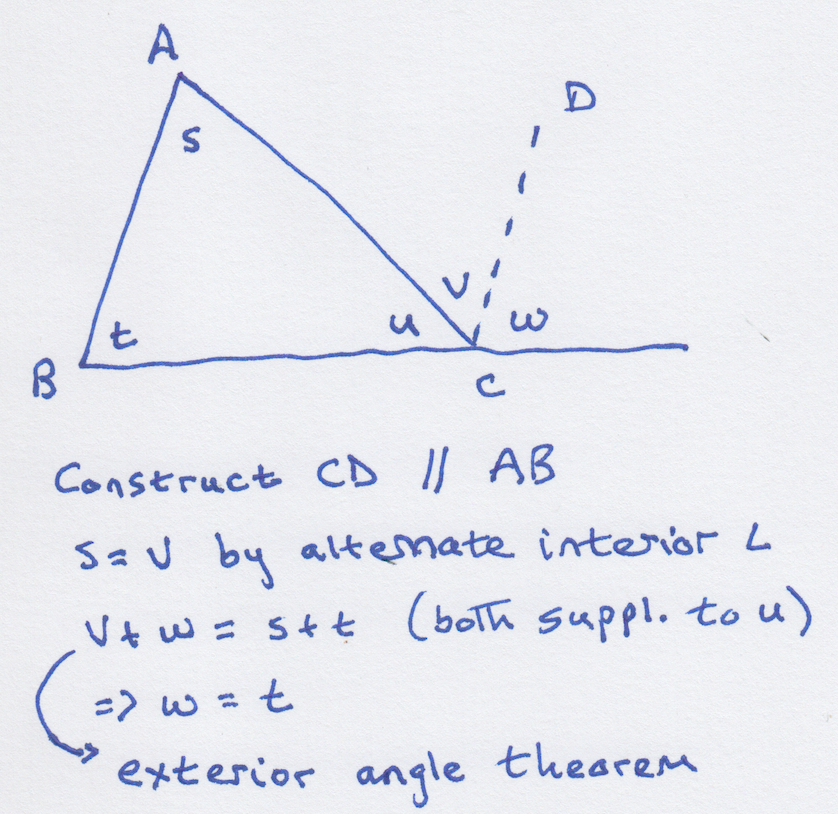 A
D
s
v
t
u
w
B
C
Construct CD // AB
s = v by alternate interior ∠
v + w = s + t (both suppl. to u)
=> w = t
exterior angle theorem